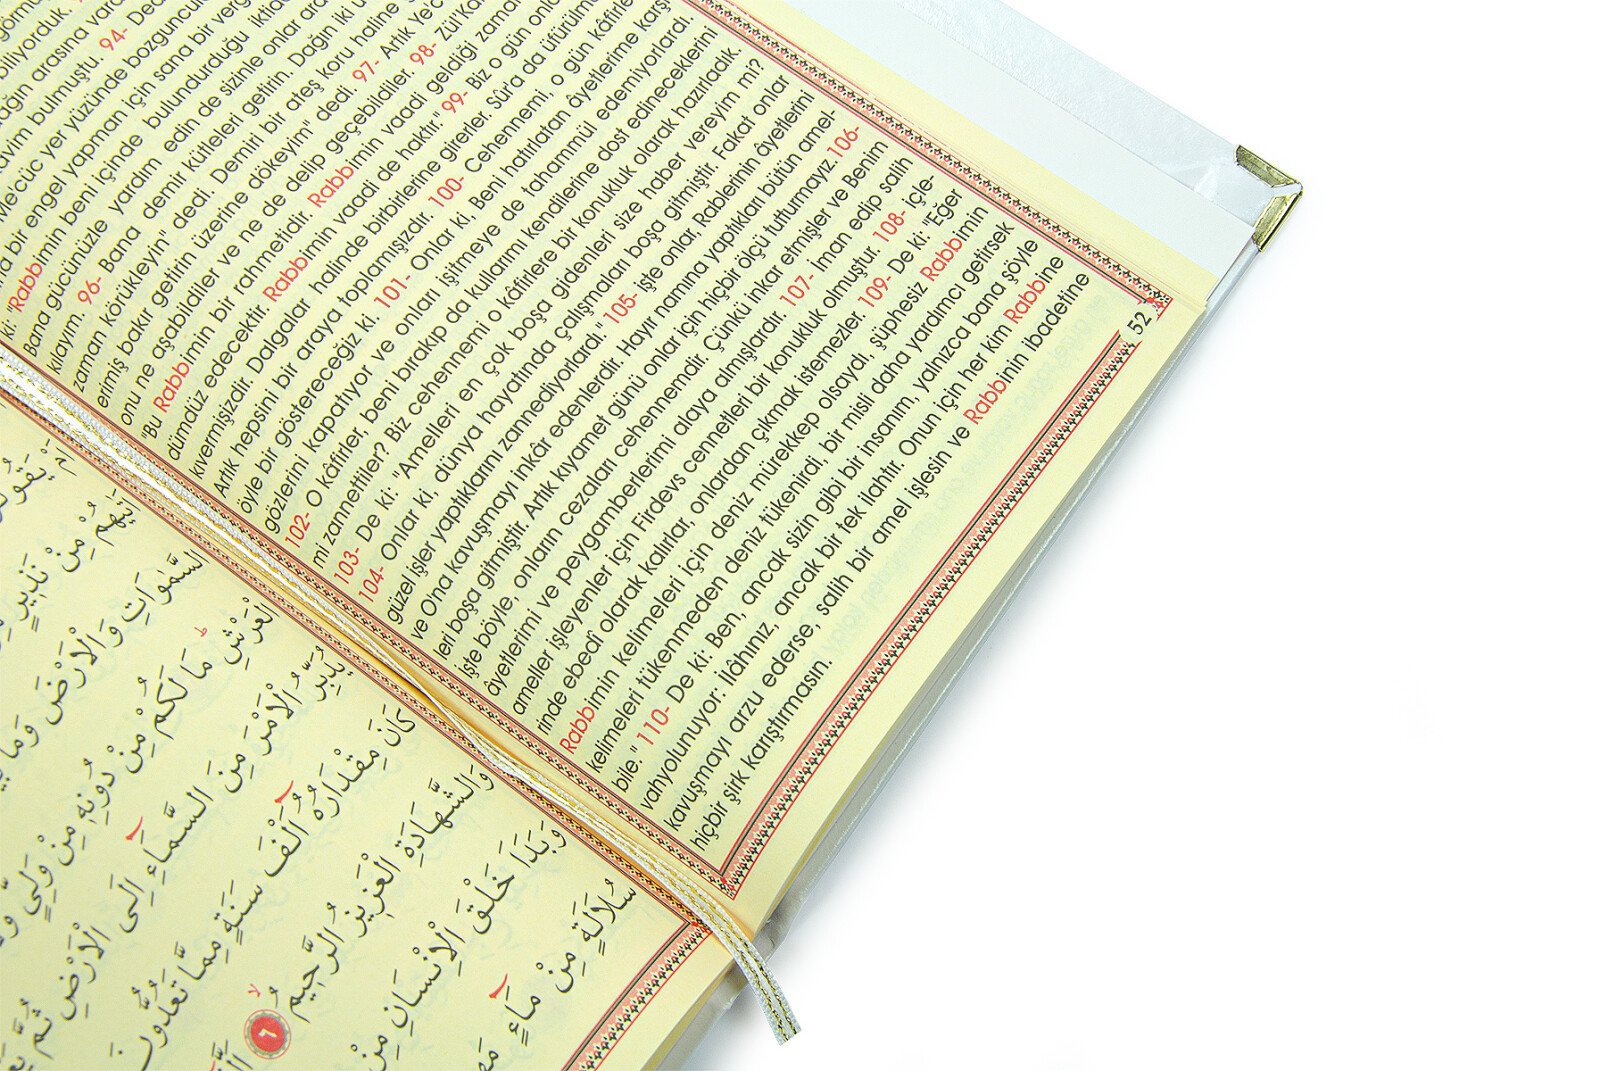 biliyorduk.
dağın arasına varı
kavim bulmuştu. 94- Ded
Mecüc yer yüzünde bozguncul
na bir engel yapman için sana bir verg
ki "Rabbimin beni içinde bulundurduğu iktida
Bana gücünüzle yardım edin de sizinle onlar ara
kılayım. 96- Bana demir kütleleri getirin. Dağın iki u
zaman "Körükleyin" dedi. Demiri bir ateş koru haline g
erimiş bakır getirin üzerine dökeyim" dedi. 97- Artık Ye'c
onu ne aşabildiler ve ne de delip geçebildiler. 98- Zül'Ka
"Bu Rabbimin bir rahmetidir. Rabbimin vaadi geldiği zama
dümdüz edecektir. Rabbimin vaadi de haktır." 99- Biz o gün onla
kıvermişizdir. Dalgalar halinde birbirlerine girerler. Sûr'a da üfürülm
Artık hepsini bir araya toplamışızdır. 100- Cehennemi, o gün kâfirle
öyle bir göstereceğiz ki. 101- Onlar ki, Beni hatırlatan âyetlerime karşı
gözlerini kapatıyor ve onları işitmeye de tahammül edemiyorlardı.
102- O kâfirler, beni bırakıp da kullarımı kendilerine dost edineceklerini
mi zannettiler? Biz cehennemi o kâfirlere bir konukluk olarak hazırladık.
103- De ki: "Amelleri en çok boşa gidenleri size haber vereyim mi?
104- Onlar ki, dünya hayatında çalışmaları boşa gitmiştir. Fakat onlar
güzel işler yaptıklarını zannediyorlardı." 105- İşte onlar, Rablerinin âyetlerini
ve O'na kavuşmayı inkâr edenlerdir. Hayır namına yaptıkları bütün amel-
leri boşa gitmiştir. Artık kıyamet günü onlar için hiçbir ölçü tutturmayız. 106-
İşte böyle, onların cezaları cehennemdir. Çünkü inkar etmişler ve Benim
âyetlerimi ve peygamberlerimi alaya almışlardır. 107- İman edip salih
ameller işleyenler için Firdevs cennetleri bir konukluk olmuştur. 108- İçle-
rinde ebedî olarak kalırlar, onlardan çıkmak istemezler. 109- De ki: "Eğer
Rabbimin kelimeleri için deniz mürekkep olsaydı, şüphesiz Rabbimin
kelimeleri tükenmeden deniz tükenirdi, bir misli daha yardımcı getirsek
bile." 110- De ki: Ben, ancak sizin gibi bir insanım, yalnızca bana şöyle
vahyolunuyor: İlâhınız, ancak bir tek ilahtır. Onun için her kim Rabbine
kavuşmayı arzu ederse, salih bir amel işlesin ve Rabbinin ibadetine
hiçbir şirk karıştırmasın.
52
يَقُولُو
مِنْ نَذِيرٍ
السَّمٰوَاتِ وَالْاَرْضَ وَمَا
الْعَرْشِ مَا لَكُمْ مِنْ دُونِهٖ مِنْ وَلِيٍّ
يُدَبِّرُ الْاَمْرَ مِنَ السَّمَآءِ اِلَى الْاَرْضِ ثُمَّ
كَانَ مِقْدَارُهُٓ اَلْفَ سَنَةٍ مِمَّا تَعُدُّونَ
وَالشَّهَادَةِ الْعَزٖيزُ الرَّحٖيمُ ٦
وَبَدَاَ خَلْقَ الْاِنْسَانِ مِنْ
سُلَالَةٍ مِنْ مَآءٍ